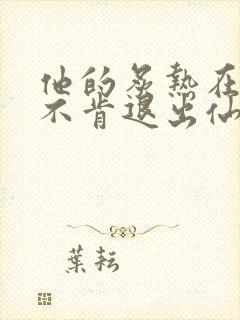 他的炙热在
不肯退出仙
葉耘